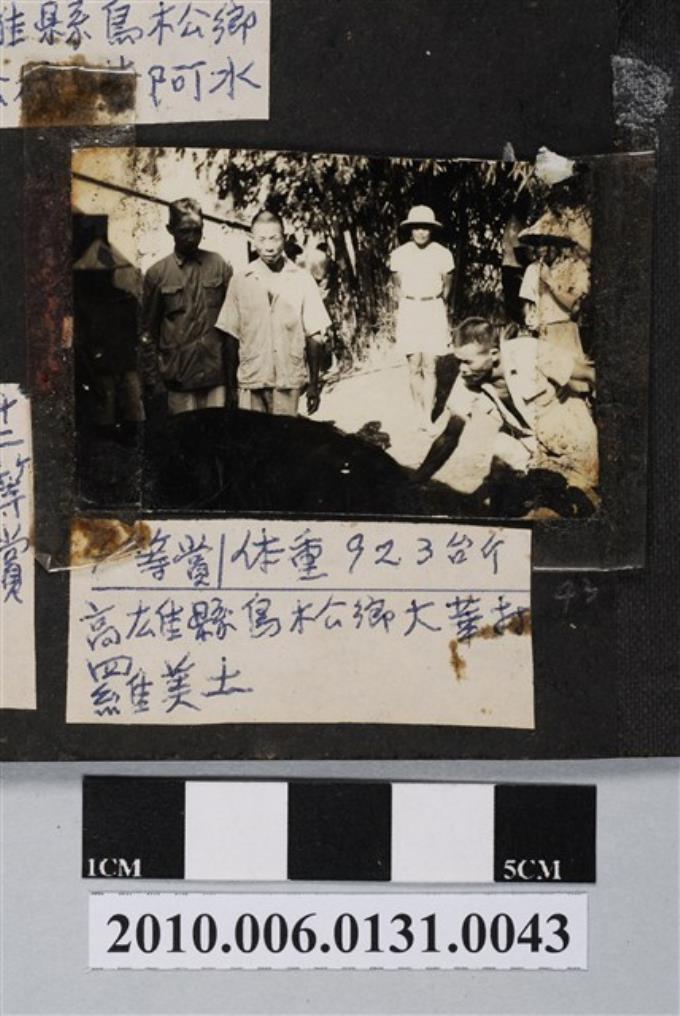 雄縣鳥松鄉
阿水
十二等賞
等賞 体重 923台斤
高雄縣鳥松鄉大華村
羅美土
1CM
5CM
2010.006.0131.0043